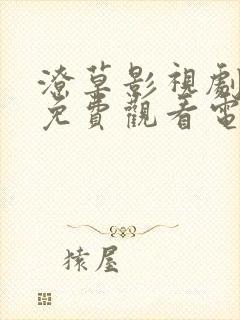 潦草影視劇
免費觀看電
猿屋